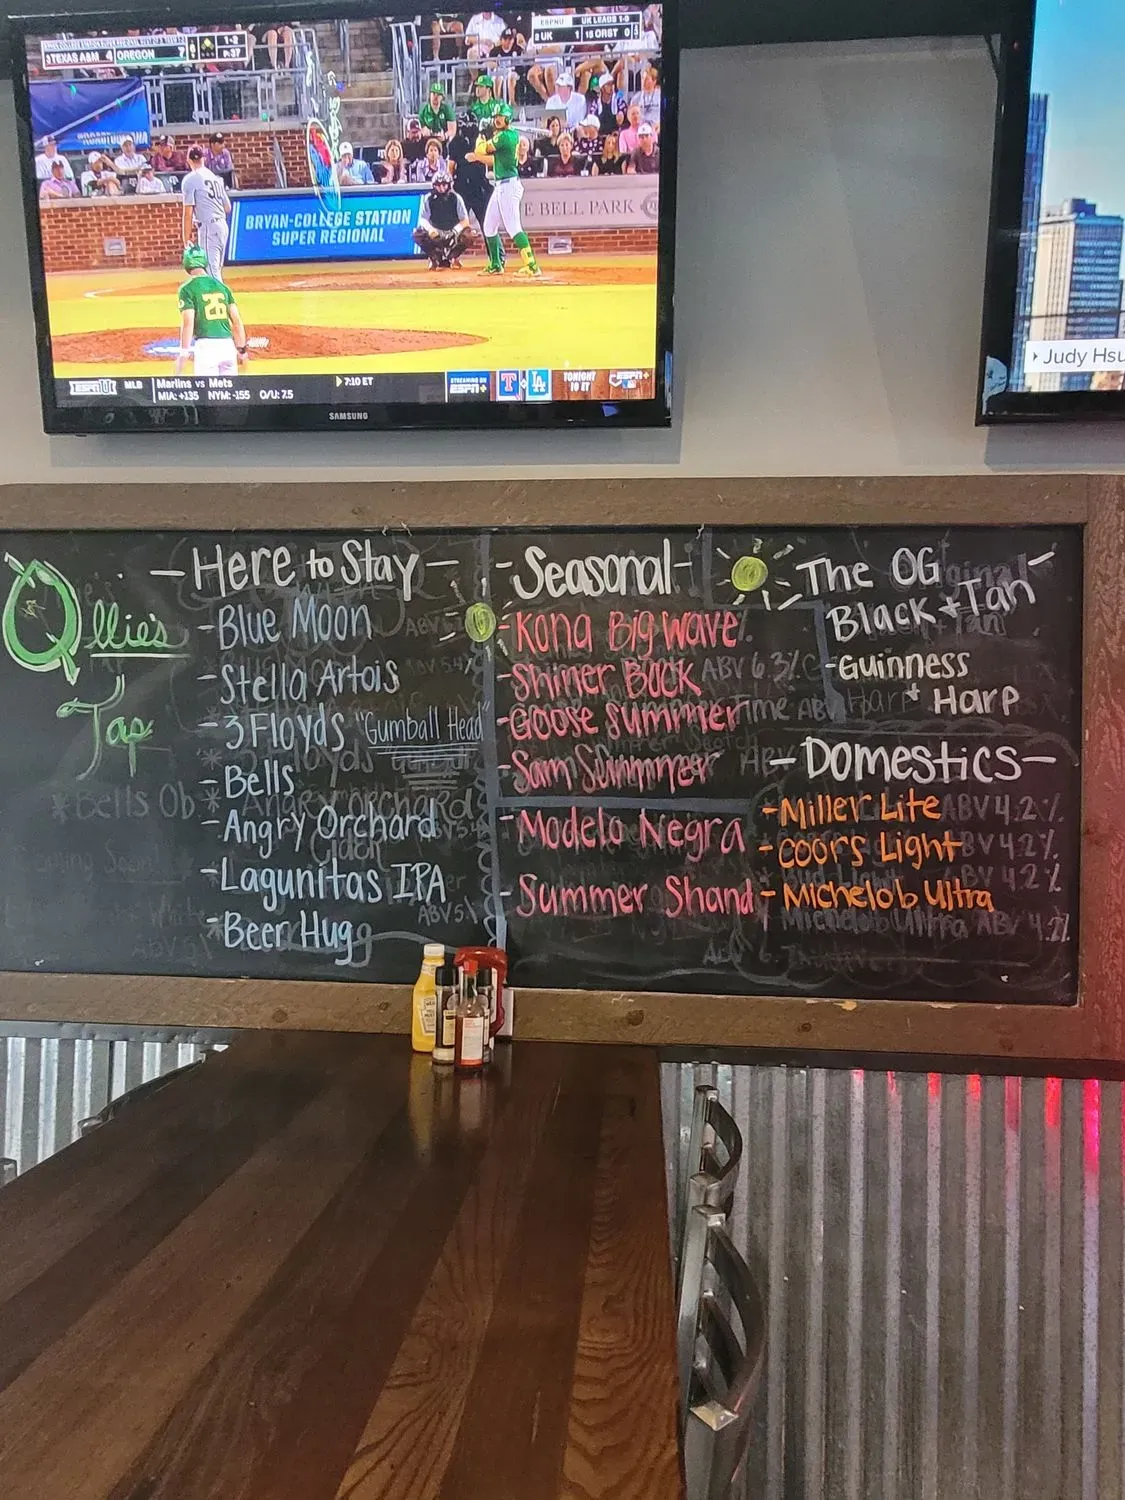 3 TEXAS A&M 4 OREGON 7 1-2
P: 37
ESPNU UK LEADS 1-0
2 UK 1 15 ORST 0
30
BRYAN-COLLEGE STATION
SUPER REGIONAL
E BELL PARK
26
ESPNU MLB Marlins vs Mets 7:10 ET
MIA: +135 NYM: -155 O/U: 7.5
STREAMING ON
ESPN+
T LA
TONIGHT
10 ET
ESPN+
SAMSUNG
Judy Hsu
Ollie's
Tap
-Here to Stay-
-Blue Moon
-Stella Artois
-3 Floyds "Gumball Head"
-Bells
-Angry Orchard
-Lagunitas IPA
-Beer Hugg
-Seasonal-
-Kona Big Wave
-Shiner Bock
-Goose Summer
-Sam Summer
-Modelo Negra
-Summer Shand
-The OG-
Black + Tan
-Guinness
+ Harp
-Domestics-
-Miller Lite
-Coors Light
-Michelob Ultra
*Bells Ob
ABV 6.3%
Time ABV
ABV 5%
ABV 4.2%
ABV 4.2%
ABV 4.2%
Michelob Ultra ABV 4.2%